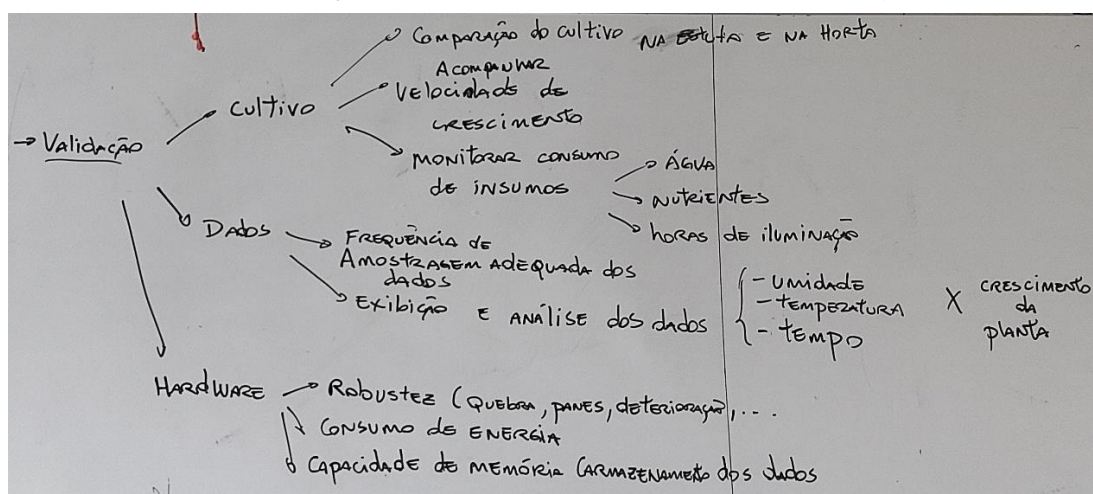 Comparação do cultivo NA Estufa E NA HORTA
Acompanhar
Velocidade de
crescimento
cultivo
→ Validação
Monitorar consumo
de insumos
Água
Nutrientes
horas de iluminação
Dados
Frequência de
Amostragem adequada dos
dados
Exibição E análise dos dados
- Umidade
- Temperatura
- Tempo
X
crescimento
da
planta
Hardware
Robustez (quebra, panes, deterioração, ...
Consumo de energia
Capacidade de memória (armazenamento dos dados